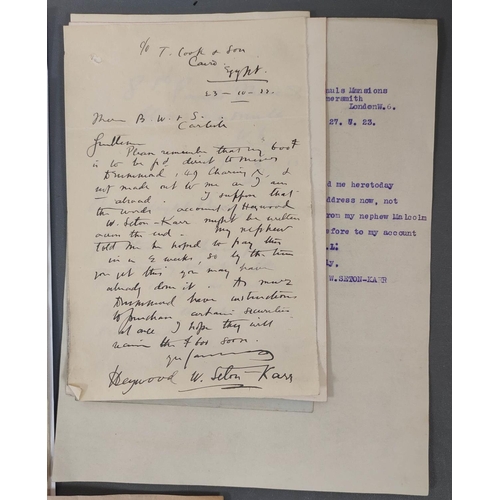 c/o T. Cook & Son
Cairo
Egypt.
23-10-22.
B. W. & S.
Carlisle
Gentlemen
Please remember that my
is to be pd direct to
Drummond, 49 Charing X, &
not made out to me as I am
abroad. I suppose that
the words account of Heywood
W. Seton-Karr might be written
across the end. My nephew
told me he hoped to pay this
in a 2 weeks, so by the time
you get this you may have
already done it. As
Drummond have instructions
to purchase certain securities
at once I hope they will
receive the soon.
Heywood W. Seton-Karr
auls Mansions
mersmith
London W.6.
27. 9. 23.
d me heretoday
ddress now, not
rom my nephew Malcolm
efore to my account
ly.
W. SETON-KARR